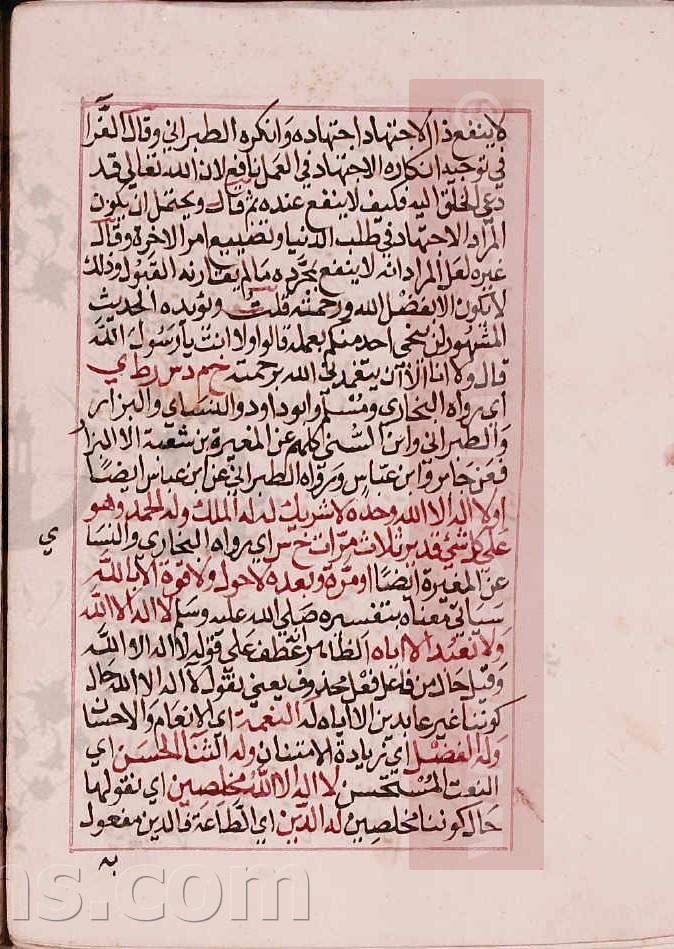 لا ينفع ذا الاجتهاد اجتهاده وانكره الطبراني وقال الفرا
في توجيه انكاره الاجتهاد في العمل نافع لان الله تعالى قد
دعى الخلق اليه فكيف لا ينفع عنده ثم قال ويحتمل ان يكون
المراد الاجتهاد في طلب الدنيا وتضييع امر الاخرة وقال
غيره لعل المراد انه لا ينفع بمجرده ما لم يقارنه القبول وذلك
لا يكون الا بفضل الله ورحمته قلت ويؤيده الحديث
المشهور لن ينجي احد منكم بعمله قالوا ولا انت يا رسول الله
قال ولا انا الا ان يتغمدني الله برحمته خ م د س ر ط ي
اي رواه البخاري ومسلم وابو داود والنساي والبزار
والطبراني وابن السني كلهم عن المغيرة بن شعبة الا البزار
فعن جابر وابن عباس ورواه الطبراني عن ابن عباس ايضا
او لا اله الا الله وحده لا شريك له له الملك وله الحمد وهو
على كل شئ قدير ثلاث مرات خ س اي رواه البخاري والنسا
ي
عن المغيرة ايضا او مرة وبعده لا حول ولا قوة الا بالله
سياتي معناه بتفسيره صلى الله عليه وسلم لا اله الا الله
ولا نعبد الا اياه الظاهر انه عطف على قوله لا اله الا الله
وقيل حال من فاعل فعل محذوف يعني نقول لا اله الا الله حال
كوننا غير عابدين الا اياه له النعمة اي الانعام والاحسان
وله الفضل اي زيادة الامتنان وله الثنا الحسن اي
النعت المستحسن لا اله الا الله مخلصين اي نقولها
حال كوننا مخلصين له الدين اي الطاعة فالدين مفعول
به
ns.com